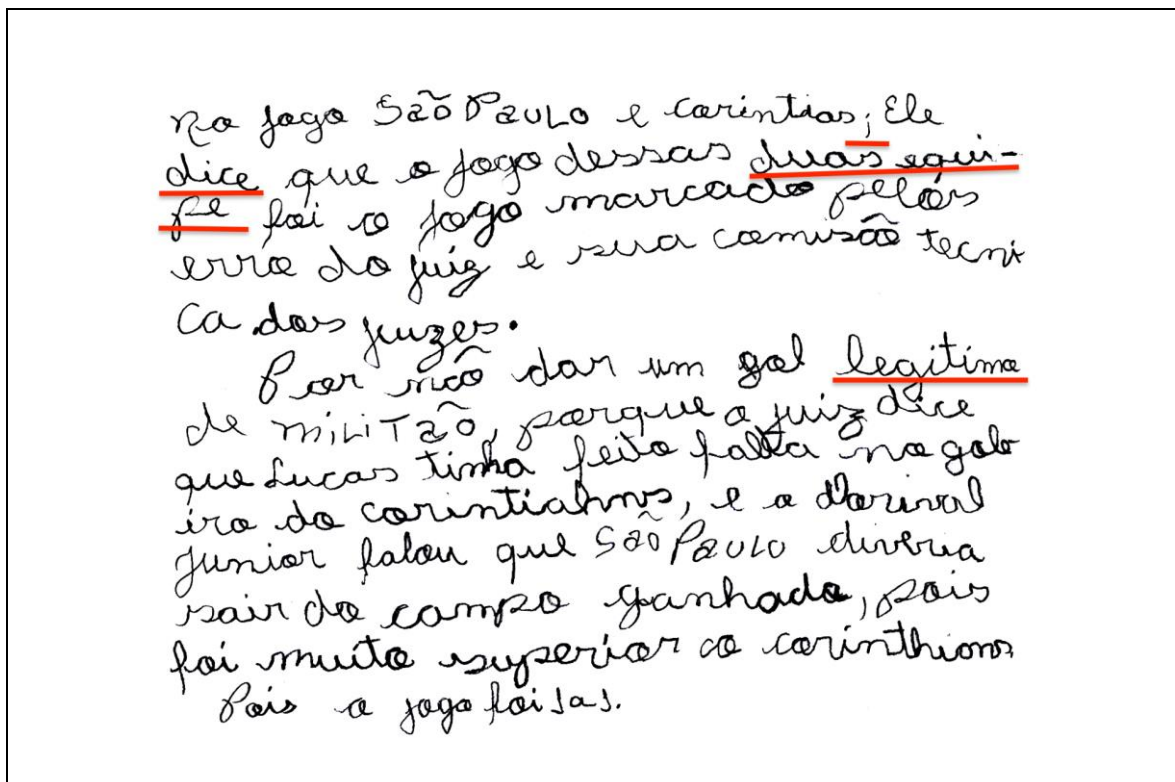 no jogo São Paulo e corintias; Ele
dice que o jogo dessas duas equi-
pe foi o jogo marcado pelos
erro do juiz e sua comisão tecni
ca dos juizes.
Por não dar um gol legitimo
de militão, porque o juiz dice
que Lucas tinha feito falta no gole
iro do corintiahns, e o Dorival
Junior falou que São Paulo diveria
sair do campo ganhado, pois
foi muito superior ao corinthians
Pois o jogo foi 1as1.